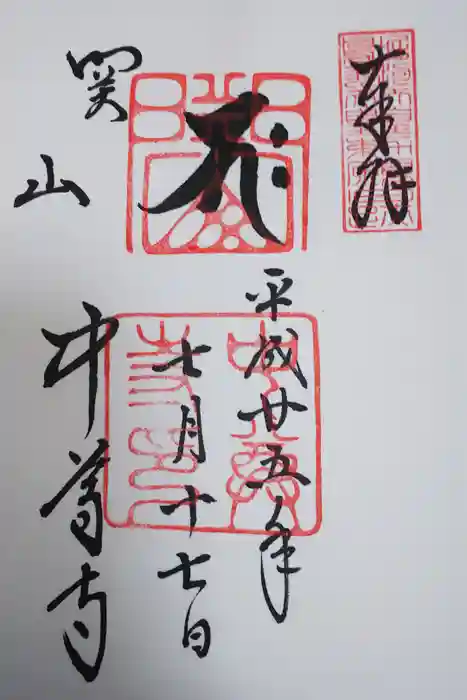 奉拝
平成廿五年
七月十七日
関山
中尊寺